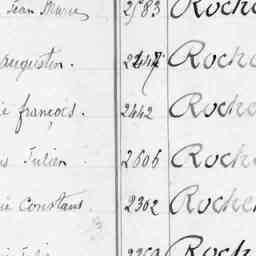 Jean Marie 2583 Roche
augustin. Roche
ie françois. 2442 Roche
is Julien 2606 Roche
ie Constans 2302 Rocher
Roche